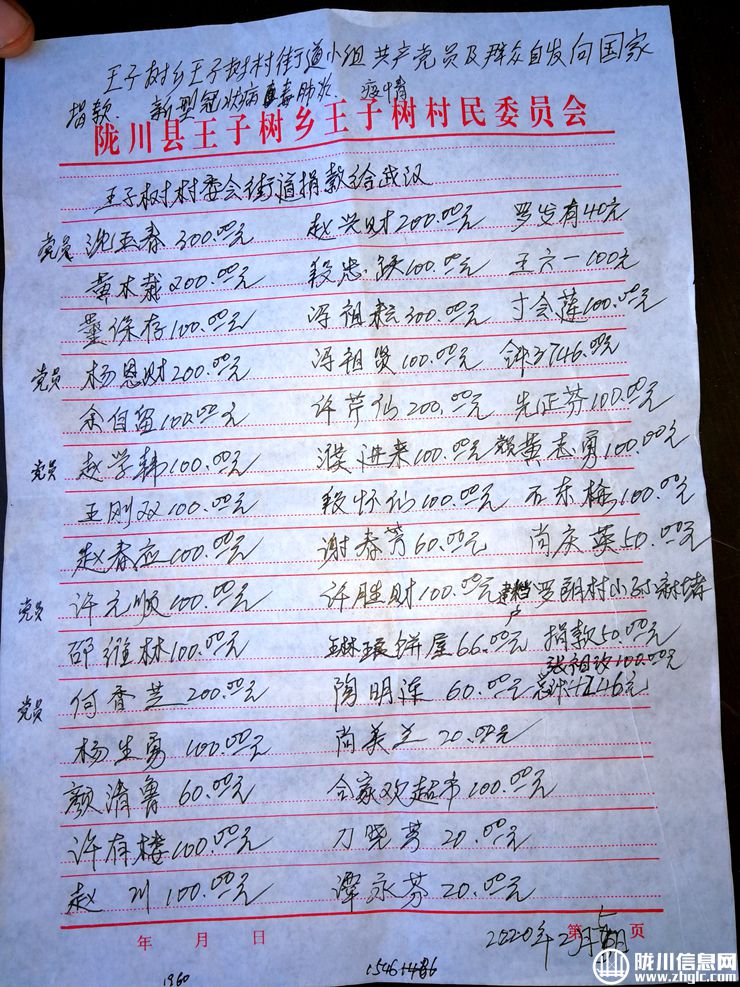 王子树乡王子树村街道小组共产党员及群众自发向国家
捐款. 新型冠状病毒肺炎. 疫情
陇川县王子树乡王子树村民委员会
王子树村委会街道捐款给武汉
党员 沈玉春300.00元 赵兴财200.00元 罗发有40元
黄木栽200.00元 段忠跃100.00元 王六一100元
董保存100.00元 冯祖耘300.00元 寸会莲100.00元
党员 杨恩财200.00元 冯祖贤100.00元 3746.00元
余自留100.00元 许芹仙200.00元 先正芬100.00元
党员 赵学韩100.00元 濮进来100.00元 黄志勇100.00元
王刚双100.00元 段怀仙100.00元 石东梅100.00元
赵春应100.00元 谢春芳60.00元 尚庆英50.00元
党员 许元顺100.00元 许胜财100.00元 罗朗村小
邵维林100.00元 琳琅饼屋66.00元 捐款50.00元
张祖改100.00元
党员 何香芝200.00元 陶明莲60.00元 总计4246元
杨生勇100.00元 尚美兰20.00元
颜清鲁60.00元 合家欢超市100.00元
许有楼100.00元 刀晓芳20.00元
赵川100.00元 谭永芬20.00元
年 月 日 第 页
2020年2月 日
1960 1546+486
陇川信息网
www.zhglc.com